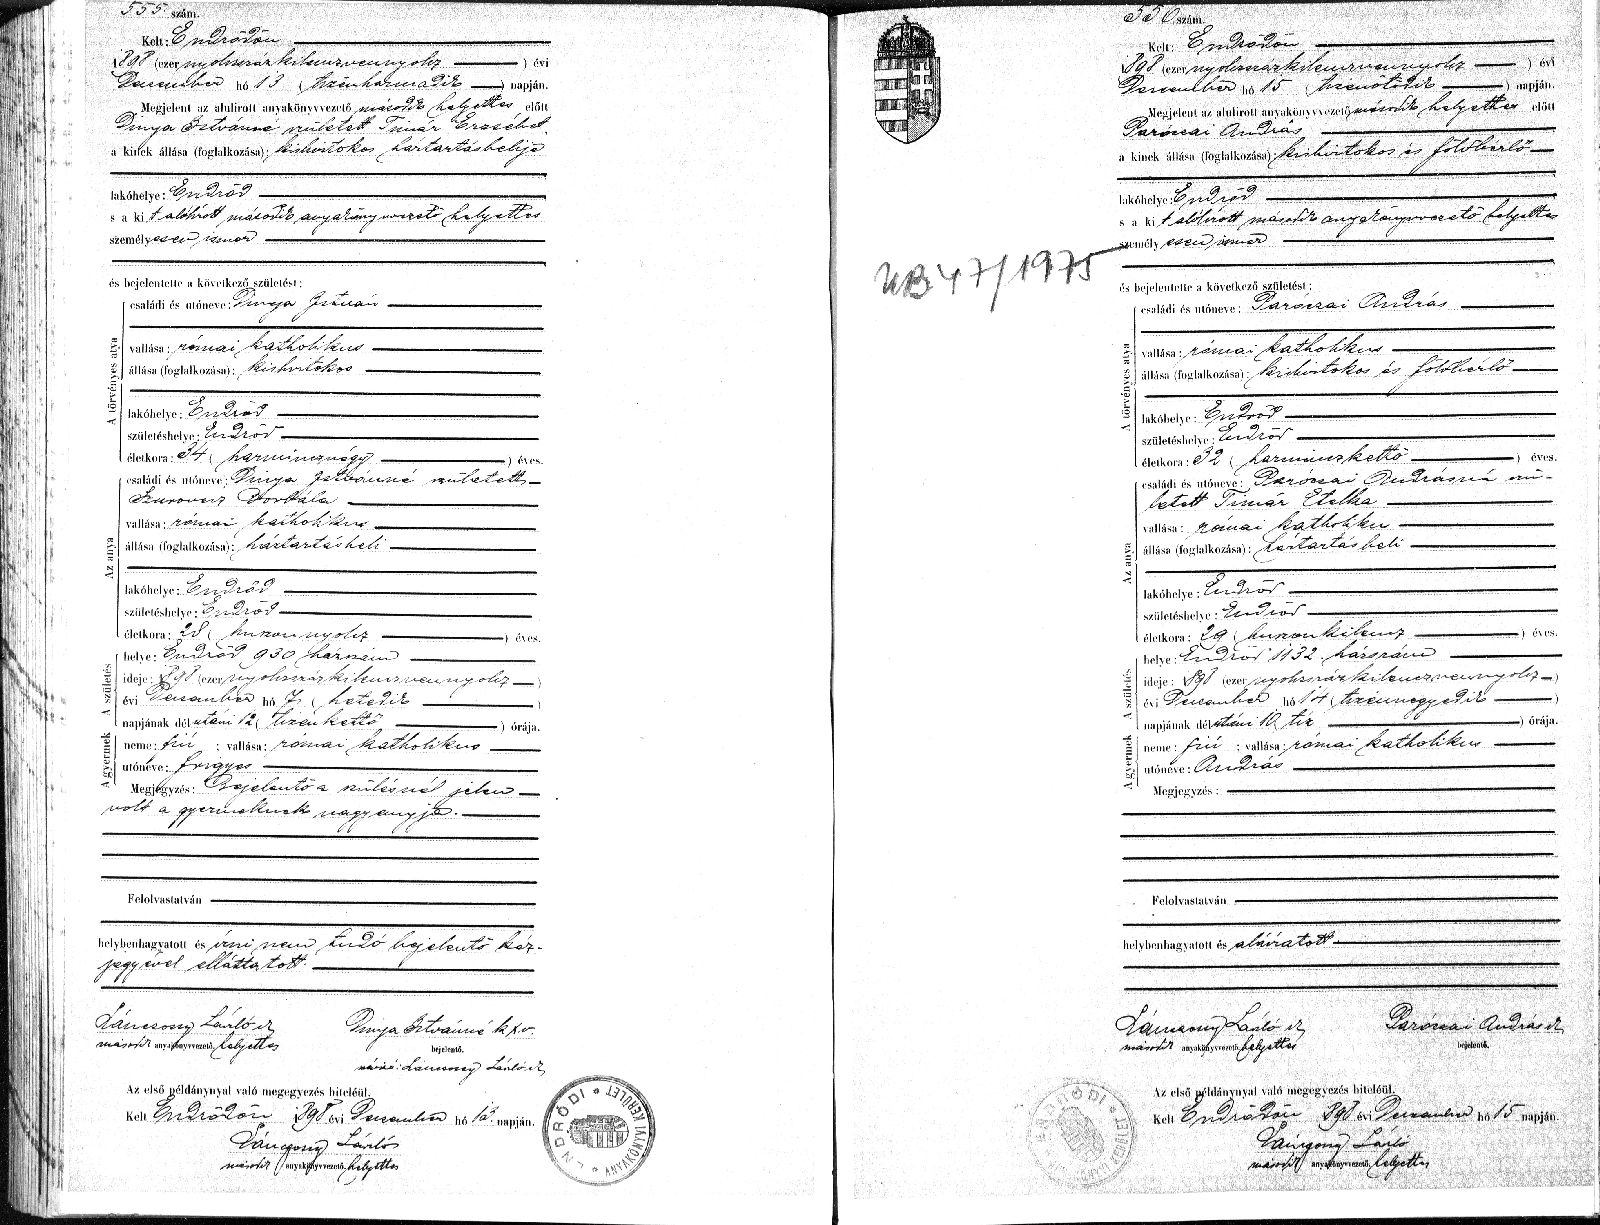 555 szám.
Kelt: Endrődön
1898 (ezer nyolczszázkilenczvennyolcz) évi
December hó 13 (tizenharmadik) napján.
Megjelent az alulirott anyakönyvvezető második helyettes előtt
Dinya Istvánné született Timár Erzsébet
a kinek állása (foglalkozása): kisbirtokos háztartásbelije
lakóhelye: Endrőd
s a kit alólirott második anyakönyvvezető helyettes
személyesen ismer
és bejelentette a következő születést:
A törvényes atya
családi és utóneve: Dinya István
vallása: római katholikus
állása (foglalkozása): kisbirtokos
lakóhelye: Endrőd
születéshelye: Endrőd
életkora: 34 (harmincznégy) éves.
Az anya
családi és utóneve: Dinya Istvánné született
Szurovecz Borbála
vallása: római katholikus
állása (foglalkozása): háztartásbeli
lakóhelye: Endrőd
születéshelye: Endrőd
életkora: 28 (huszonnyolcz) éves.
A születés
helye: Endrőd 930 házszám
ideje: 1898 (ezer nyolczszázkilenczvennyolcz)
évi December hó 7 (hetedik)
napjának délutáni 12 (tizenkettő) órája.
A gyermek
neme: fiú; vallása: római katholikus
utóneve: Frigyes
Megjegyzés: Bejelentő a szülésnél jelen
volt a gyermeknek nagyanyja.
Felolvastatván
helybenhagyatott és írni nem tudó bejelentő kéz-
jegyével elláttatott.
Lánczony László
Dinya Istvánné
második anyakönyvvezető helyettes
bejelentő.
Lánczony László
Az első példánynyal való megegyezés hiteléül.
Kelt Endrődön 1898 évi December hó 13 napján.
Lánczony László
második anyakönyvvezető helyettes
ENDRŐDI ANYAKÖNYVI KERÜLET
556 szám.
Kelt: Endrődön
1898 (ezer nyolczszázkilenczvennyolcz) évi
December hó 15 (tizenötödik) napján.
Megjelent az alulirott anyakönyvvezető második helyettes előtt
Paróczai András
a kinek állása (foglalkozása): kisbirtokos és földbérlő
lakóhelye: Endrőd
s a kit alólirott második anyakönyvvezető helyettes
személyesen ismer
47/1975
és bejelentette a következő születést:
A törvényes atya
családi és utóneve: Paróczai András
vallása: római katholikus
állása (foglalkozása): kisbirtokos és földbérlő
lakóhelye: Endrőd
születéshelye: Endrőd
életkora: 32 (harminczkettő) éves.
Az anya
családi és utóneve: Paróczai Andrásné szü-
letett Timár Etelka
vallása: római katholikus
állása (foglalkozása): háztartásbeli
lakóhelye: Endrőd
születéshelye: Endrőd
életkora: 29 (huszonkilencz) éves.
A születés
helye: Endrőd 1132 házszám
ideje: 1898 (ezer nyolczszázkilenczvennyolcz)
évi December hó 14 (tizennegyedik)
napjának délutáni 10 tíz órája.
A gyermek
neme: fiú; vallása: római katholikus
utóneve: András
Megjegyzés:
Felolvastatván
helybenhagyatott és aláíratott
Lánczony László
Paróczai András
második anyakönyvvezető helyettes
bejelentő.
Az első példánynyal való megegyezés hiteléül.
Kelt Endrődön 1898 évi December hó 15 napján.
Lánczony László
második anyakönyvvezető helyettes